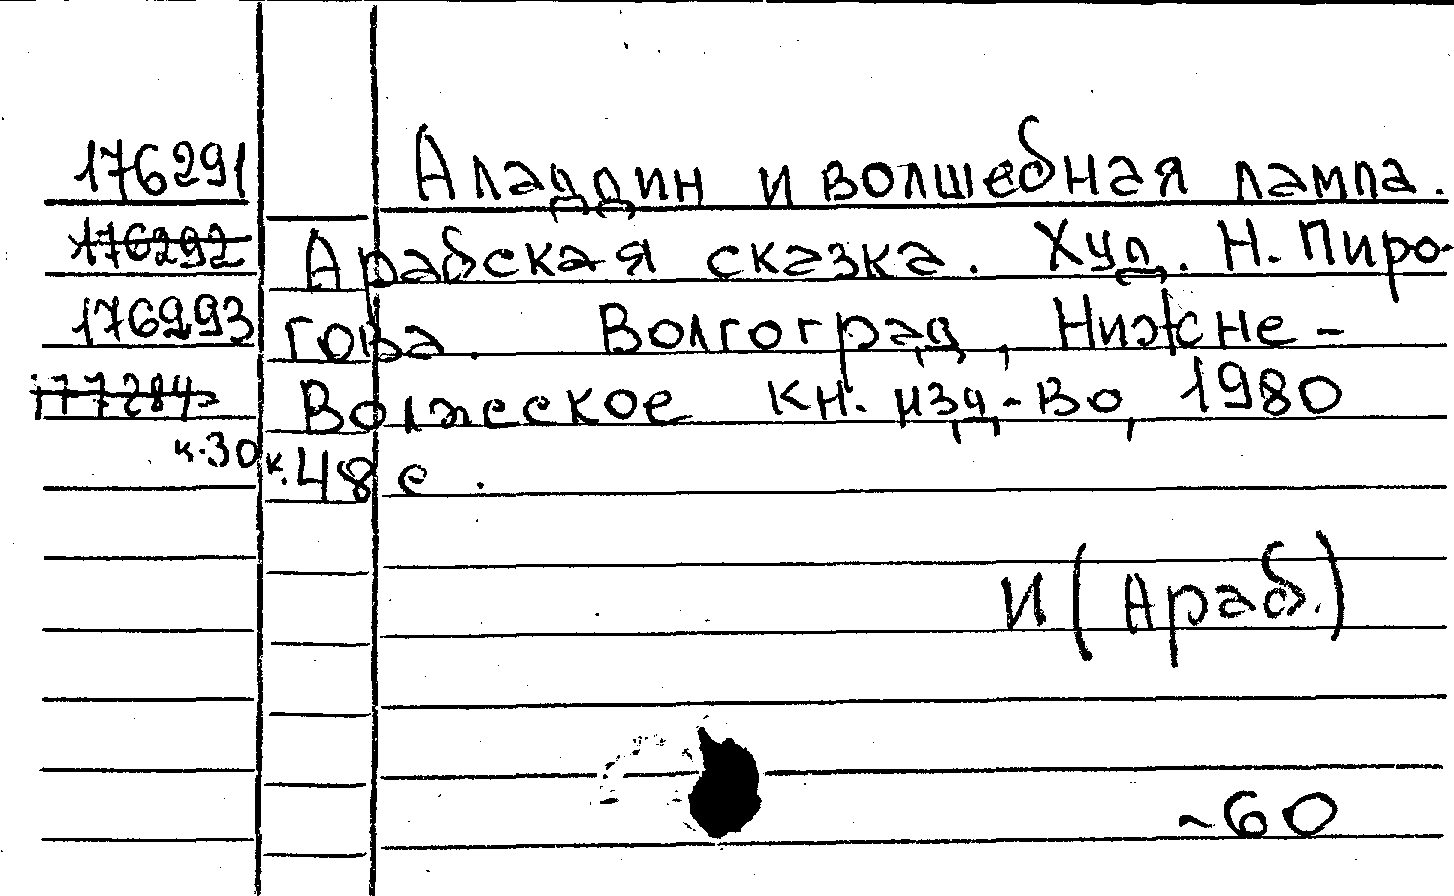 176291 Аладдин и волшебная лампа.
176292 Арабская сказка. Худ. Н. Пиро-
176293 гова. Волгоград, Нижне-
177284 Волжское кн. изд-во, 1980
к.30 к. 48 с.
И (Араб.)
~60